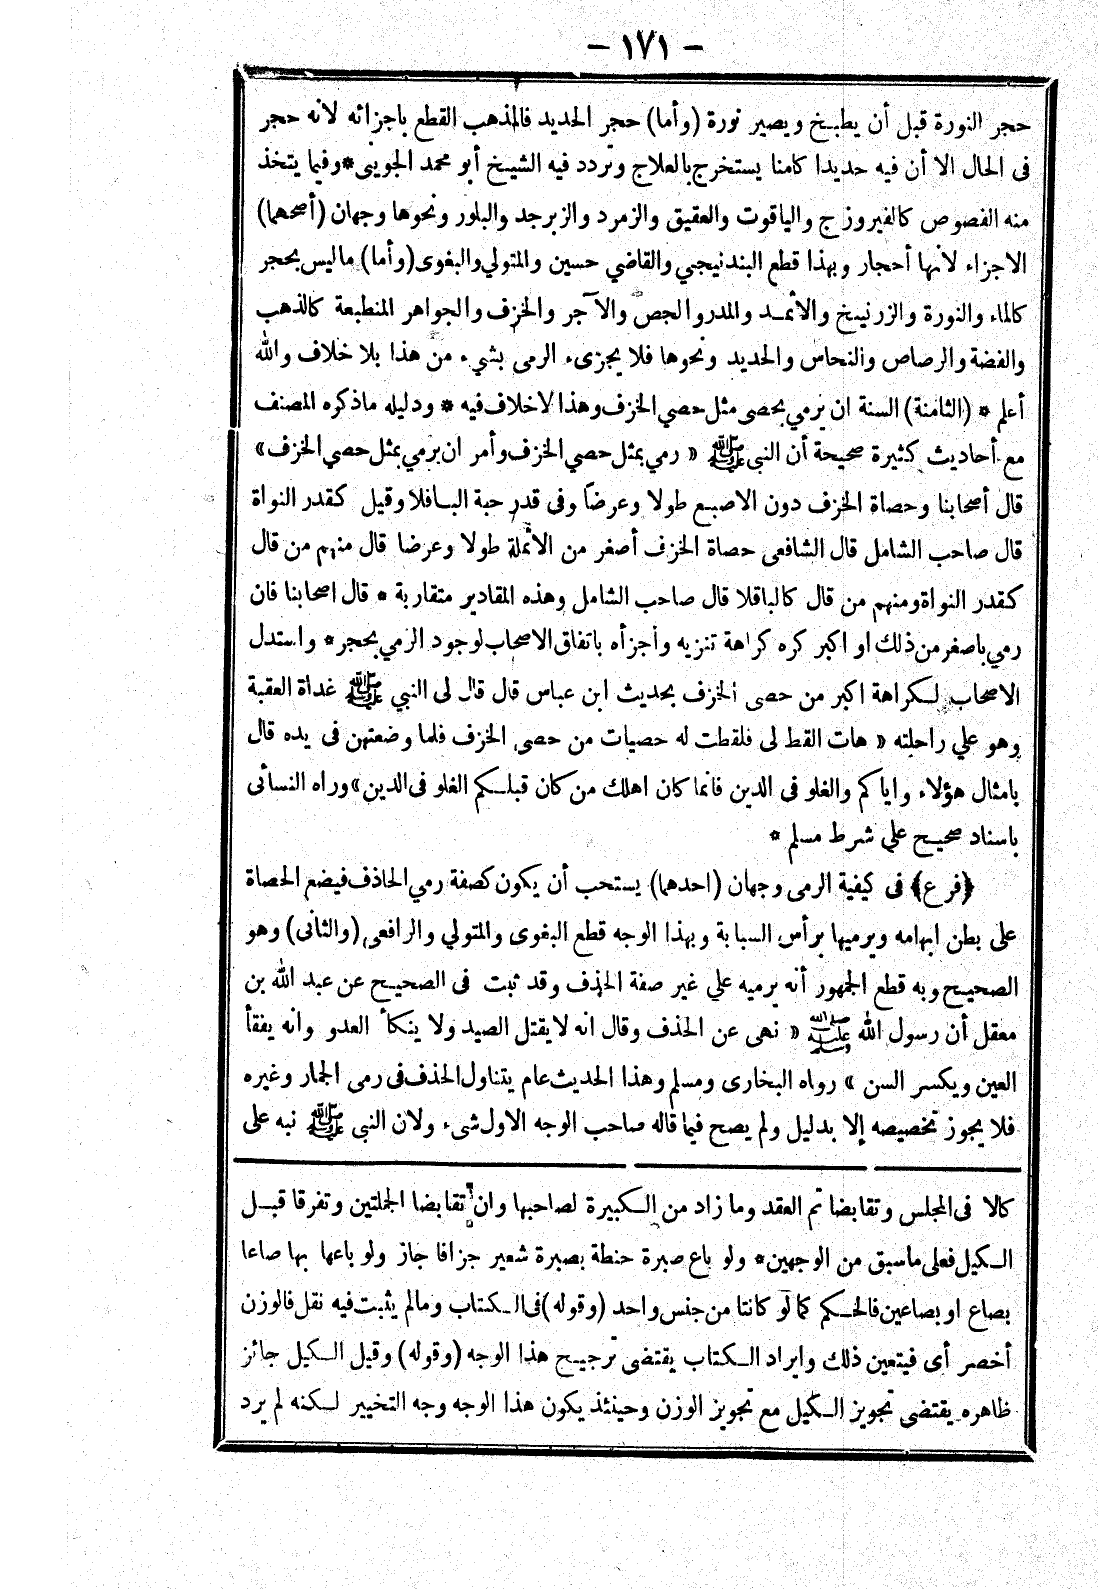 - ١٧١ -
حجر النورة قبل أن يطبخ ويصير نورة (وأما) حجر الحديد فالمذهب القطع باجزائه لانه حجر
فى الحال الا أن فيه حديدا كامنا يستخرج بالعلاج وتردد فيه الشيخ أبو محمد الجويى * وفيما يتخذ
منه الفصوص كالفيروزج والياقوت والعقيق والزمرد والزبرجد والبلور ونحوها وجهان (أصحهما)
الاجزاء لانها أحجار وبهذا قطع البندنيجي والقاضي حسين والمتولي والبغوى (وأما) ماليس بحجر
كالماء والنورة والزرنيخ والاثمد والمدر والجص والآجر والخزف والجواهر المنطبعة كالذهب
والفضة والرصاص والنحاس والحديد ونحوها فلا يجزىء الرمى بشيء من هذا بلا خلاف والله
أعلم * (الثامنة) السنة ان يرمي بحصى مثل حصي الخزف وهذا لاخلاف فيه * ودليله ماذكره المصنف
مع أحاديث كثيرة صحيحة أن النبى ﷺ « رمي بمثل حصي الخزف وأمر ان يرمي بمثل حصي الخزف »
قال أصحابنا وحصاة الخزف دون الاصبع طولا وعرضا وفى قدر حبة البافلا وقيل كقدر النواة
قال صاحب الشامل قال الشافعى حصاة الخزف أصغر من الانملة طولا وعرضا قال منهم من قال
كقدر النواة ومنهم من قال كالباقلا قال صاحب الشامل وهذه المقادير متقاربة * قال اصحابنا فان
رمي باصغر من ذلك او اكبر كره كراهة تنزيه وأجزأه باتفاق الاصحاب لوجود الرمي بحجر * واستدل
الاصحاب لكراهة اكبر من حصى الخزف بحديث ابن عباس قال قال لى النبي ﷺ غداة العقبة
وهو علي راحلته « هات القط لى فلقطت له حصيات من حصى الخزف فلما وضعتهن فى يده قال
بامثال هؤلاء واياكم والغلو فى الدين فانما كان اهلك من كان قبلكم الغلو فى الدين » وراه النسأئى
باسناد صحيح علي شرط مسلم *
﴿فرع﴾ فى كيفية الرمى وجهان (احدهما) يستحب أن يكون كصفة رمي الحاذف فيضع الحصاة
على بطن ابهامه ويرميها برأس السبابة وبهذا الوجه قطع البغوى والمتولي والرافعى (والثانى) وهو
الصحيح وبه قطع الجمهور أنه يرميه علي غير صفة الحذف وقد ثبت فى الصحيح عن عبد الله بن
معقل أن رسول الله ﷺ « نهى عن الحذف وقال انه لايقتل الصيد ولا ينكأ العدو وانه يفقأ
العين ويكسر السن » رواه البخارى ومسلم وهذا الحديث عام يتناول الحذف فى رمى الجمار وغيره
فلا يجوز تخصيصه إلا بدليل ولم يصح فيما قاله صاحب الوجه الاول شىء ولان النبى ﷺ نبه على
كالا فى المجلس وتقابضا تم العقد وما زاد من الكبيرة لصاحبها وان تقابضا الجملتين وتفرقا قبل
الكيل فعلى ماسبق من الوجهين * ولو باع صبرة حنطة بصبرة شعير جزافا جاز ولو باعها بها صاعا
بصاع او بصاعين فالحكم كما لو كانتا من جنس واحد (وقوله) فى الكتاب ومالم يثبت فيه نقل فالوزن
أخصر أى فيتعين ذلك وايراد الكتاب يقتضى ترجيح هذا الوجه (وقوله) وقيل الكيل جائز
ظاهره يقتضى تجويز الكيل مع تجويز الوزن وحينئذ يكون هذا الوجه وجه التخيير لكنه لم يرد